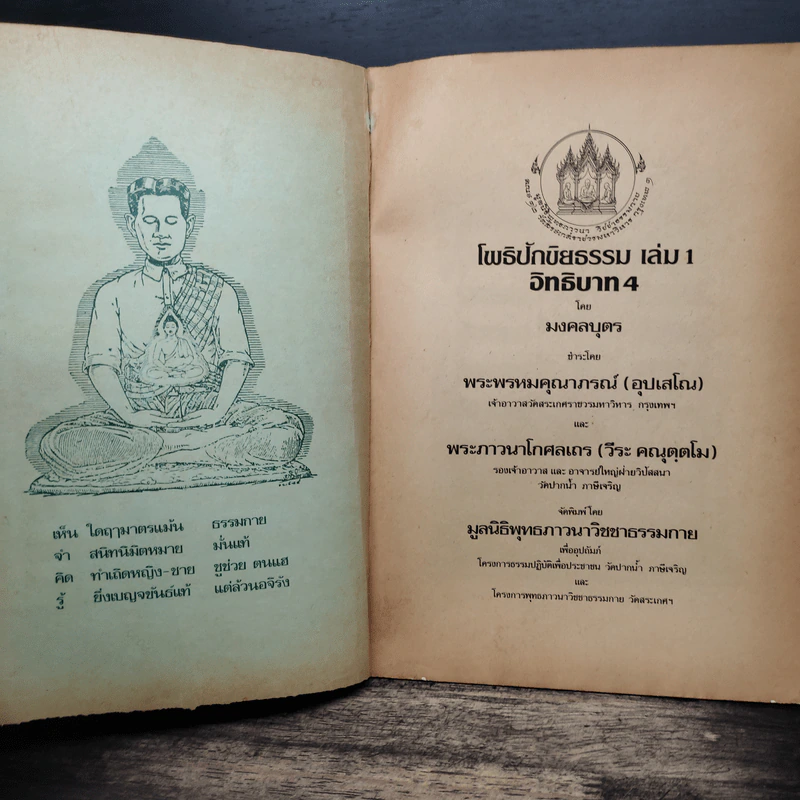 เห็น ใดฤๅมาตรแม้น ธรรมกาย
จำ สนิทนิมิตหมาย มั่นแท้
คิด ทำเถิดหญิง-ชาย ชูช่วย ตนแฮ
รู้ ยิ่งเบญจขันธ์แท้ แต่ล้วนอจิรัง
โพธิปักขิยธรรม เล่ม 1
อิทธิบาท 4
โดย
มงคลบุตร
ชำระโดย
พระพรหมคุณาภรณ์ (อุปเสโณ)
เจ้าอาวาสวัดสระเกศราชวรมหาวิหาร กรุงเทพฯ
และ
พระภาวนาโกศลเถร (วีระ คณุตฺตโม)
รองเจ้าอาวาส และ อาจารย์ใหญ่ฝ่ายวิปัสสนา
วัดปากน้ำ ภาษีเจริญ
จัดพิมพ์โดย
มูลนิธิพุทธภาวนาวิชชาธรรมกาย
เพื่ออุปถัมภ์
โครงการธรรมปฏิบัติเพื่อประชาชน วัดปากน้ำ ภาษีเจริญ
และ
โครงการพุทธภาวนาวิชชาธรรมกาย วัดสระเกศฯ